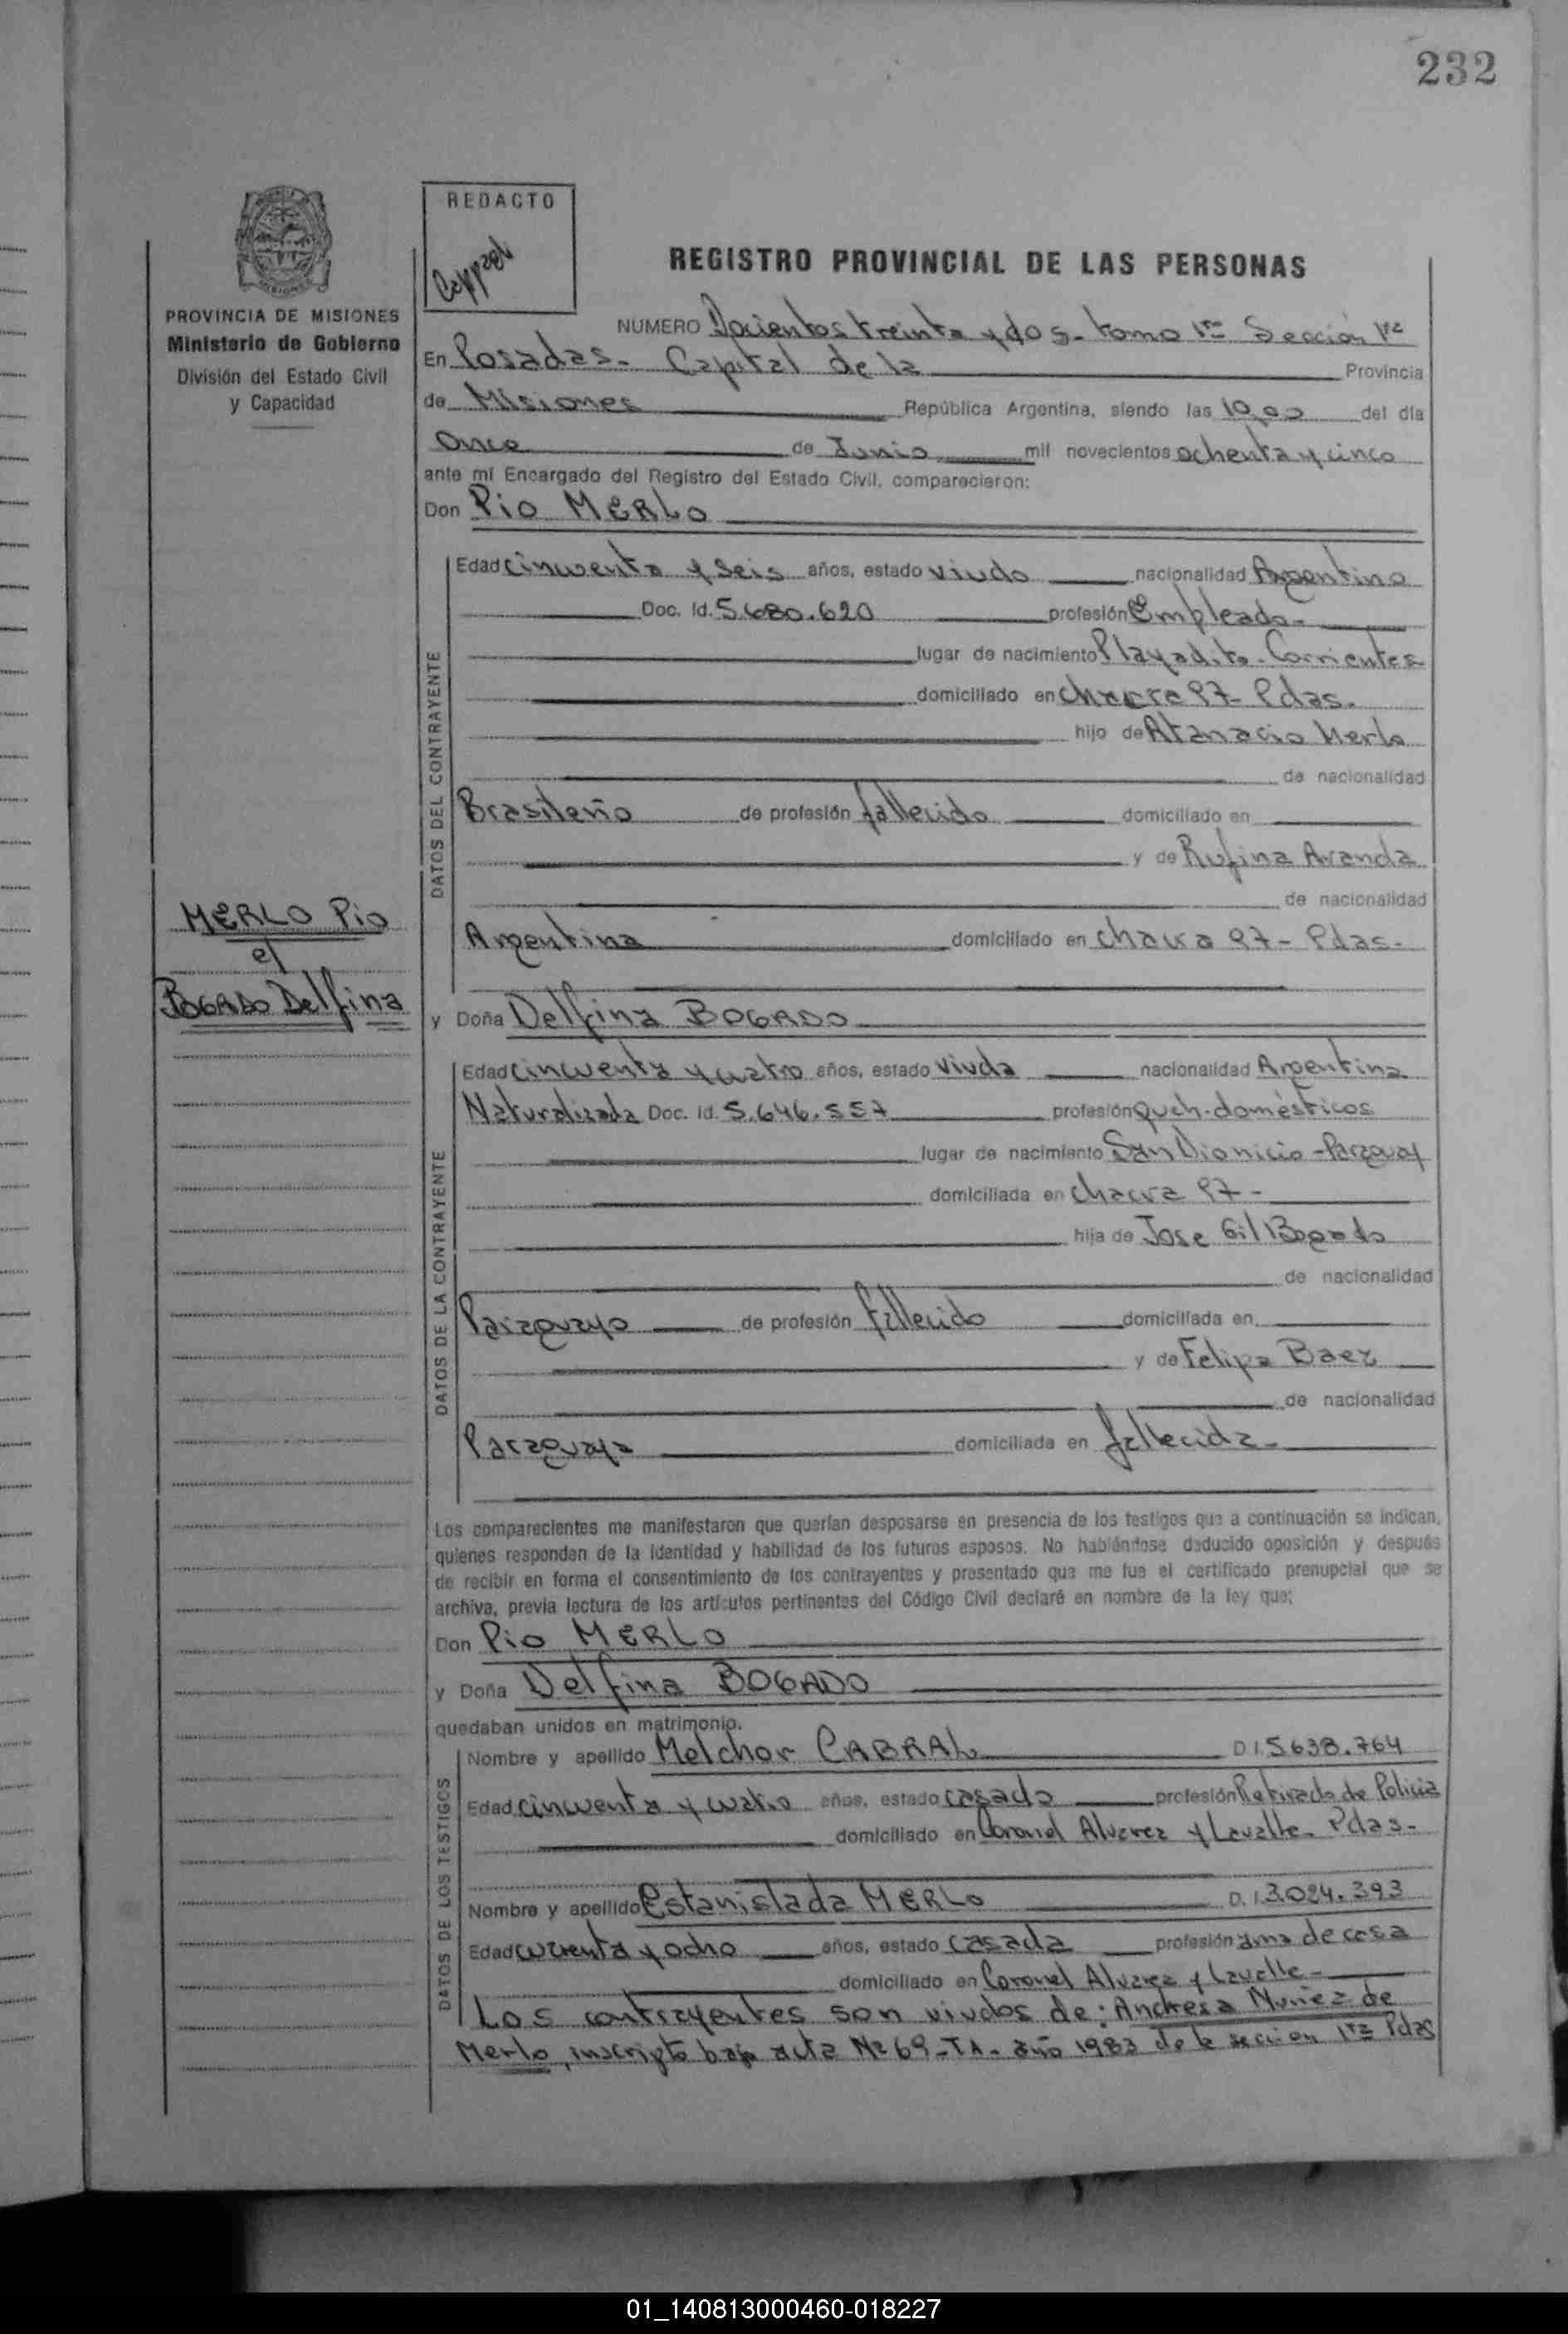 232
REDACTO
REGISTRO PROVINCIAL DE LAS PERSONAS
PROVINCIA DE MISIONES
Ministerio de Gobierno
División del Estado Civil
y Capacidad
NUMERO Docientos treinta y dos - tomo 1ro Sección 1ra
En Posadas - Capital de la Provincia
de Misiones República Argentina, siendo las 10,00 del día
Once de Junio mil novecientos ochenta y cinco
ante mí Encargado del Registro del Estado Civil, comparecieron:
Don Pio MERLO
DATOS DEL CONTRAYENTE
Edad cincuenta y seis años, estado viudo nacionalidad Argentino
Doc. Id. 5.680.620 profesión Empleado -
lugar de nacimiento Playadito - Corrientes
domiciliado en chacra 97 - Pdas.
hijo de Atanacio Merlo
de nacionalidad
Brasileño de profesión fallecido domiciliado en
y de Rufina Aranda
de nacionalidad
Argentina domiciliado en chacra 97 - Pdas -
MERLO Pio
c/
BOGADO Delfina
y Doña Delfina BOGADO
DATOS DE LA CONTRAYENTE
Edad cincuenta y cuatro años, estado viuda nacionalidad Argentina
Naturalizada Doc. Id. 5.646.557 profesión Queh. domésticos
lugar de nacimiento San Dionicio - Paraguay
domiciliada en chacra 97 -
hija de Jose Gil Bogado
de nacionalidad
Paraguayo de profesión fallecido domiciliada en
y de Felipa Baez
de nacionalidad
Paraguaya domiciliada en fallecida -
Los comparecientes me manifestaron que querían desposarse en presencia de los testigos que a continuación se indican,
quienes responden de la identidad y habilidad de los futuros esposos. No habiéndose deducido oposición y después
de recibir en forma el consentimiento de los contrayentes y presentado que me fue el certificado prenupcial que se
archiva, previa lectura de los artículos pertinentes del Código Civil declaré en nombre de la ley que:
Don Pio MERLO
y Doña Delfina BOGADO
quedaban unidos en matrimonio.
DATOS DE LOS TESTIGOS
Nombre y apellido Melchor CABRAL D.I. 5638.764
Edad cincuenta y cuatro años, estado casado profesión Retirado de Policia
domiciliado en Coronel Alvarez y Lavalle - Pdas -
Nombre y apellido Estanislada MERLO D.I. 3.024.393
Edad cuarenta y ocho años, estado casada profesión ama de casa
domiciliado en Coronel Alvarez y Lavalle -
Los contrayentes son viudos de: Andresa Muñez de
Merlo, inscripto bajo acta Nº 69 - TA - año 1983 de la sección 1ra Pdas
01_140813000460-018227